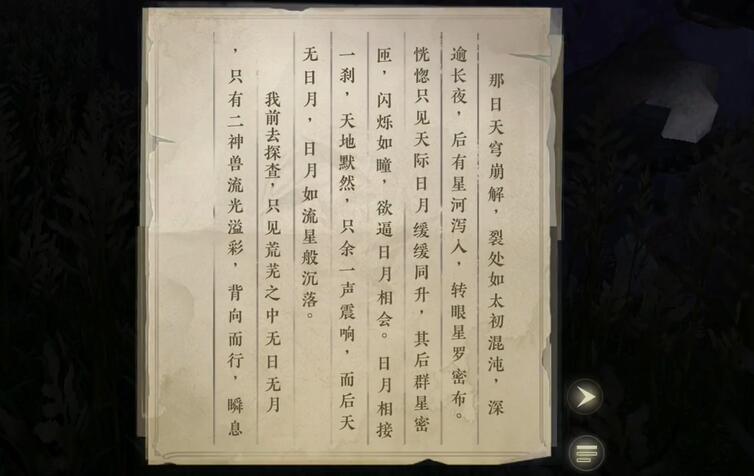 那日天穹崩解，裂处如太初混沌，深
逾长夜，后有星河泻入，转眼星罗密布。
恍惚只见天际日月缓缓同升，其后群星密
匝，闪烁如瞳，欲逼日月相会。日月相接
一刹，天地默然，只余一声震响，而后天
无日月，日月如流星般沉落。
我前去探查，只见荒芜之中无日无月
，只有二神兽流光溢彩，背向而行，瞬息